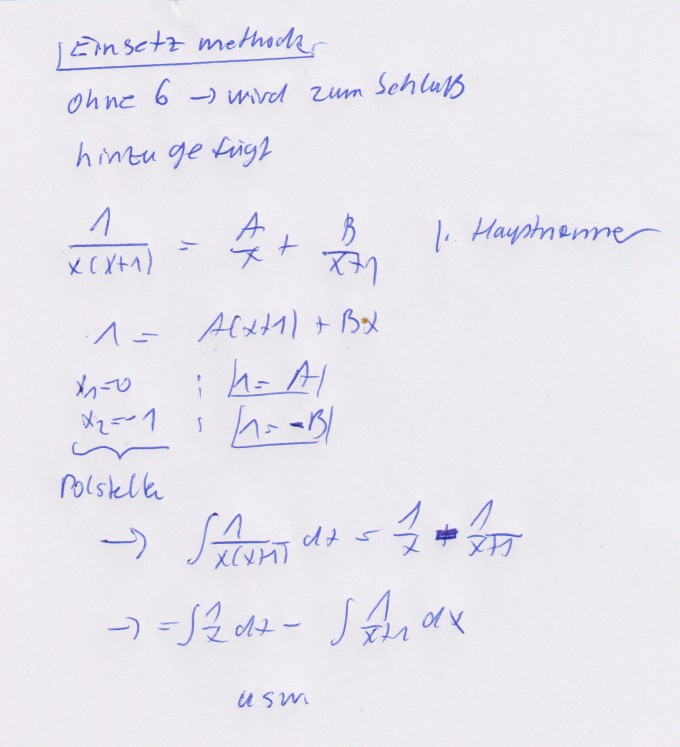 Einsetzmethode
ohne 6 → wird zum Schluß
hinzugefügt
1/(x(x+1)) = A/x + B/(x+1) |· Hauptnenner
1 = A(x+1) + Bx
x₁=0 ; 1 = A
x₂=-1 ; 1 = -B
Polstellen
→ ∫ 1/(x(x+1)) dx = 1/x - 1/(x+1)
→ = ∫ 1/x dx - ∫ 1/(x+1) dx
usw